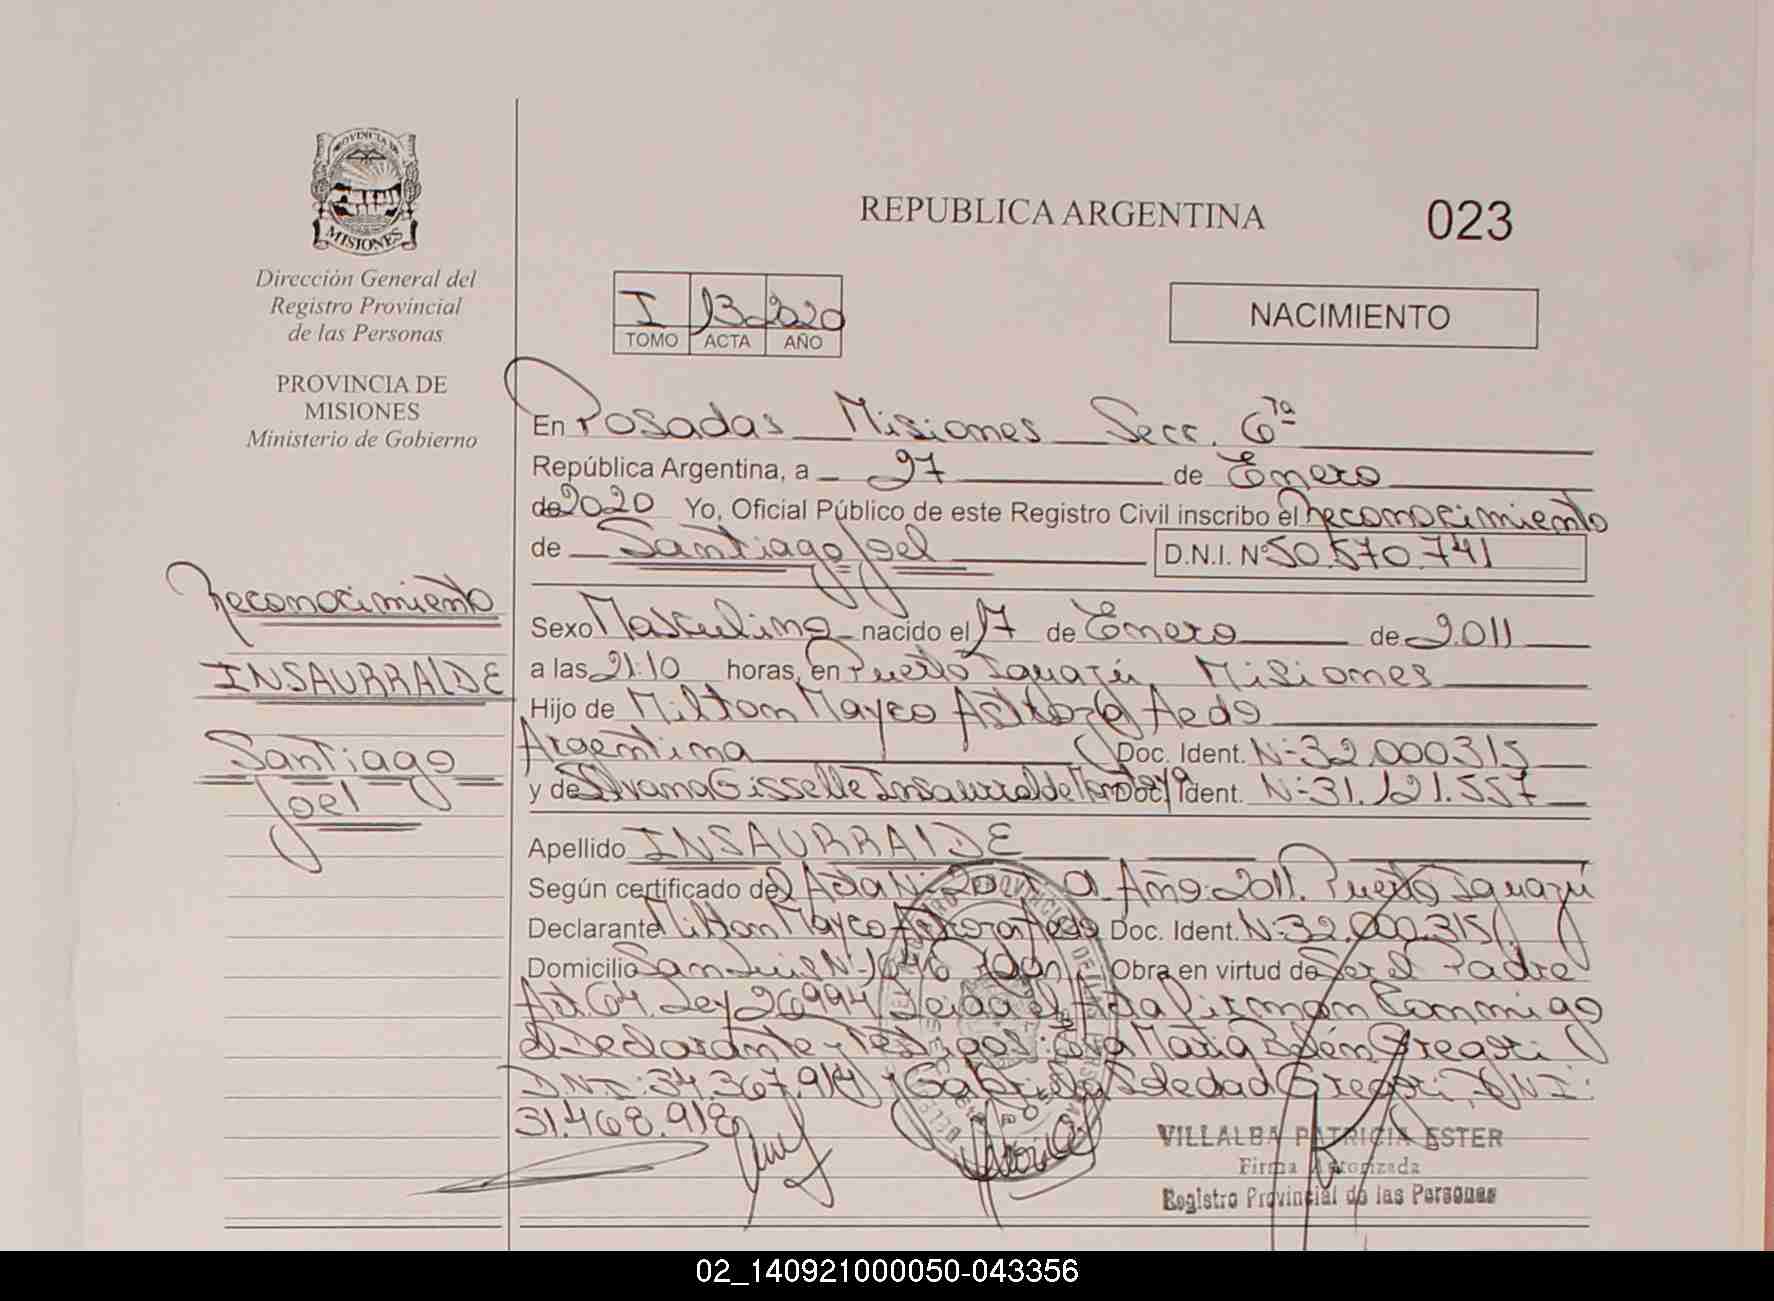 PROVINCIA DE
MISIONES
Dirección General del
Registro Provincial
de las Personas
PROVINCIA DE
MISIONES
Ministerio de Gobierno
Reconocimiento
INSAURRALDE
Santiago
Joel
REPUBLICA ARGENTINA 023
I 13 2020
TOMO ACTA AÑO
NACIMIENTO
En Posadas Misiones Secc. 6ta
República Argentina, a 27 de Enero
de 2020 Yo, Oficial Público de este Registro Civil inscribo el Reconocimiento
de Santiago Joel D.N.I. Nº 50.570.741
Sexo Masculino nacido el 17 de Enero de 2011
a las 21:10 horas, en Puerto Iguazú Misiones
Hijo de Milton Mayco Aedo
Argentina Doc. Ident. Nº 32.000.315
y de Silvana Gisselle Insaurralde Doc. Ident. Nº 31.121.557
Apellido INSAURRALDE
Según certificado del Acta Nº Año 2011. Puerto Iguazú
Declarante Milton Mayco Aedo Doc. Ident. Nº 32.000.315
Domicilio San Luis Nº 1646 Obra en virtud de Ser el Padre
Art. 64. Ley 26994 Leida el Acta firman Conmigo
el Declarante y Testigos: María Belén Gregori
D.N.I: 34.367.914 y Gabriela Soledad Gregori, DNI:
31.468.918
VILLALBA PATRICIA ESTER
Firma Autorizada
Registro Provincial de las Personas
02_140921000050-043356